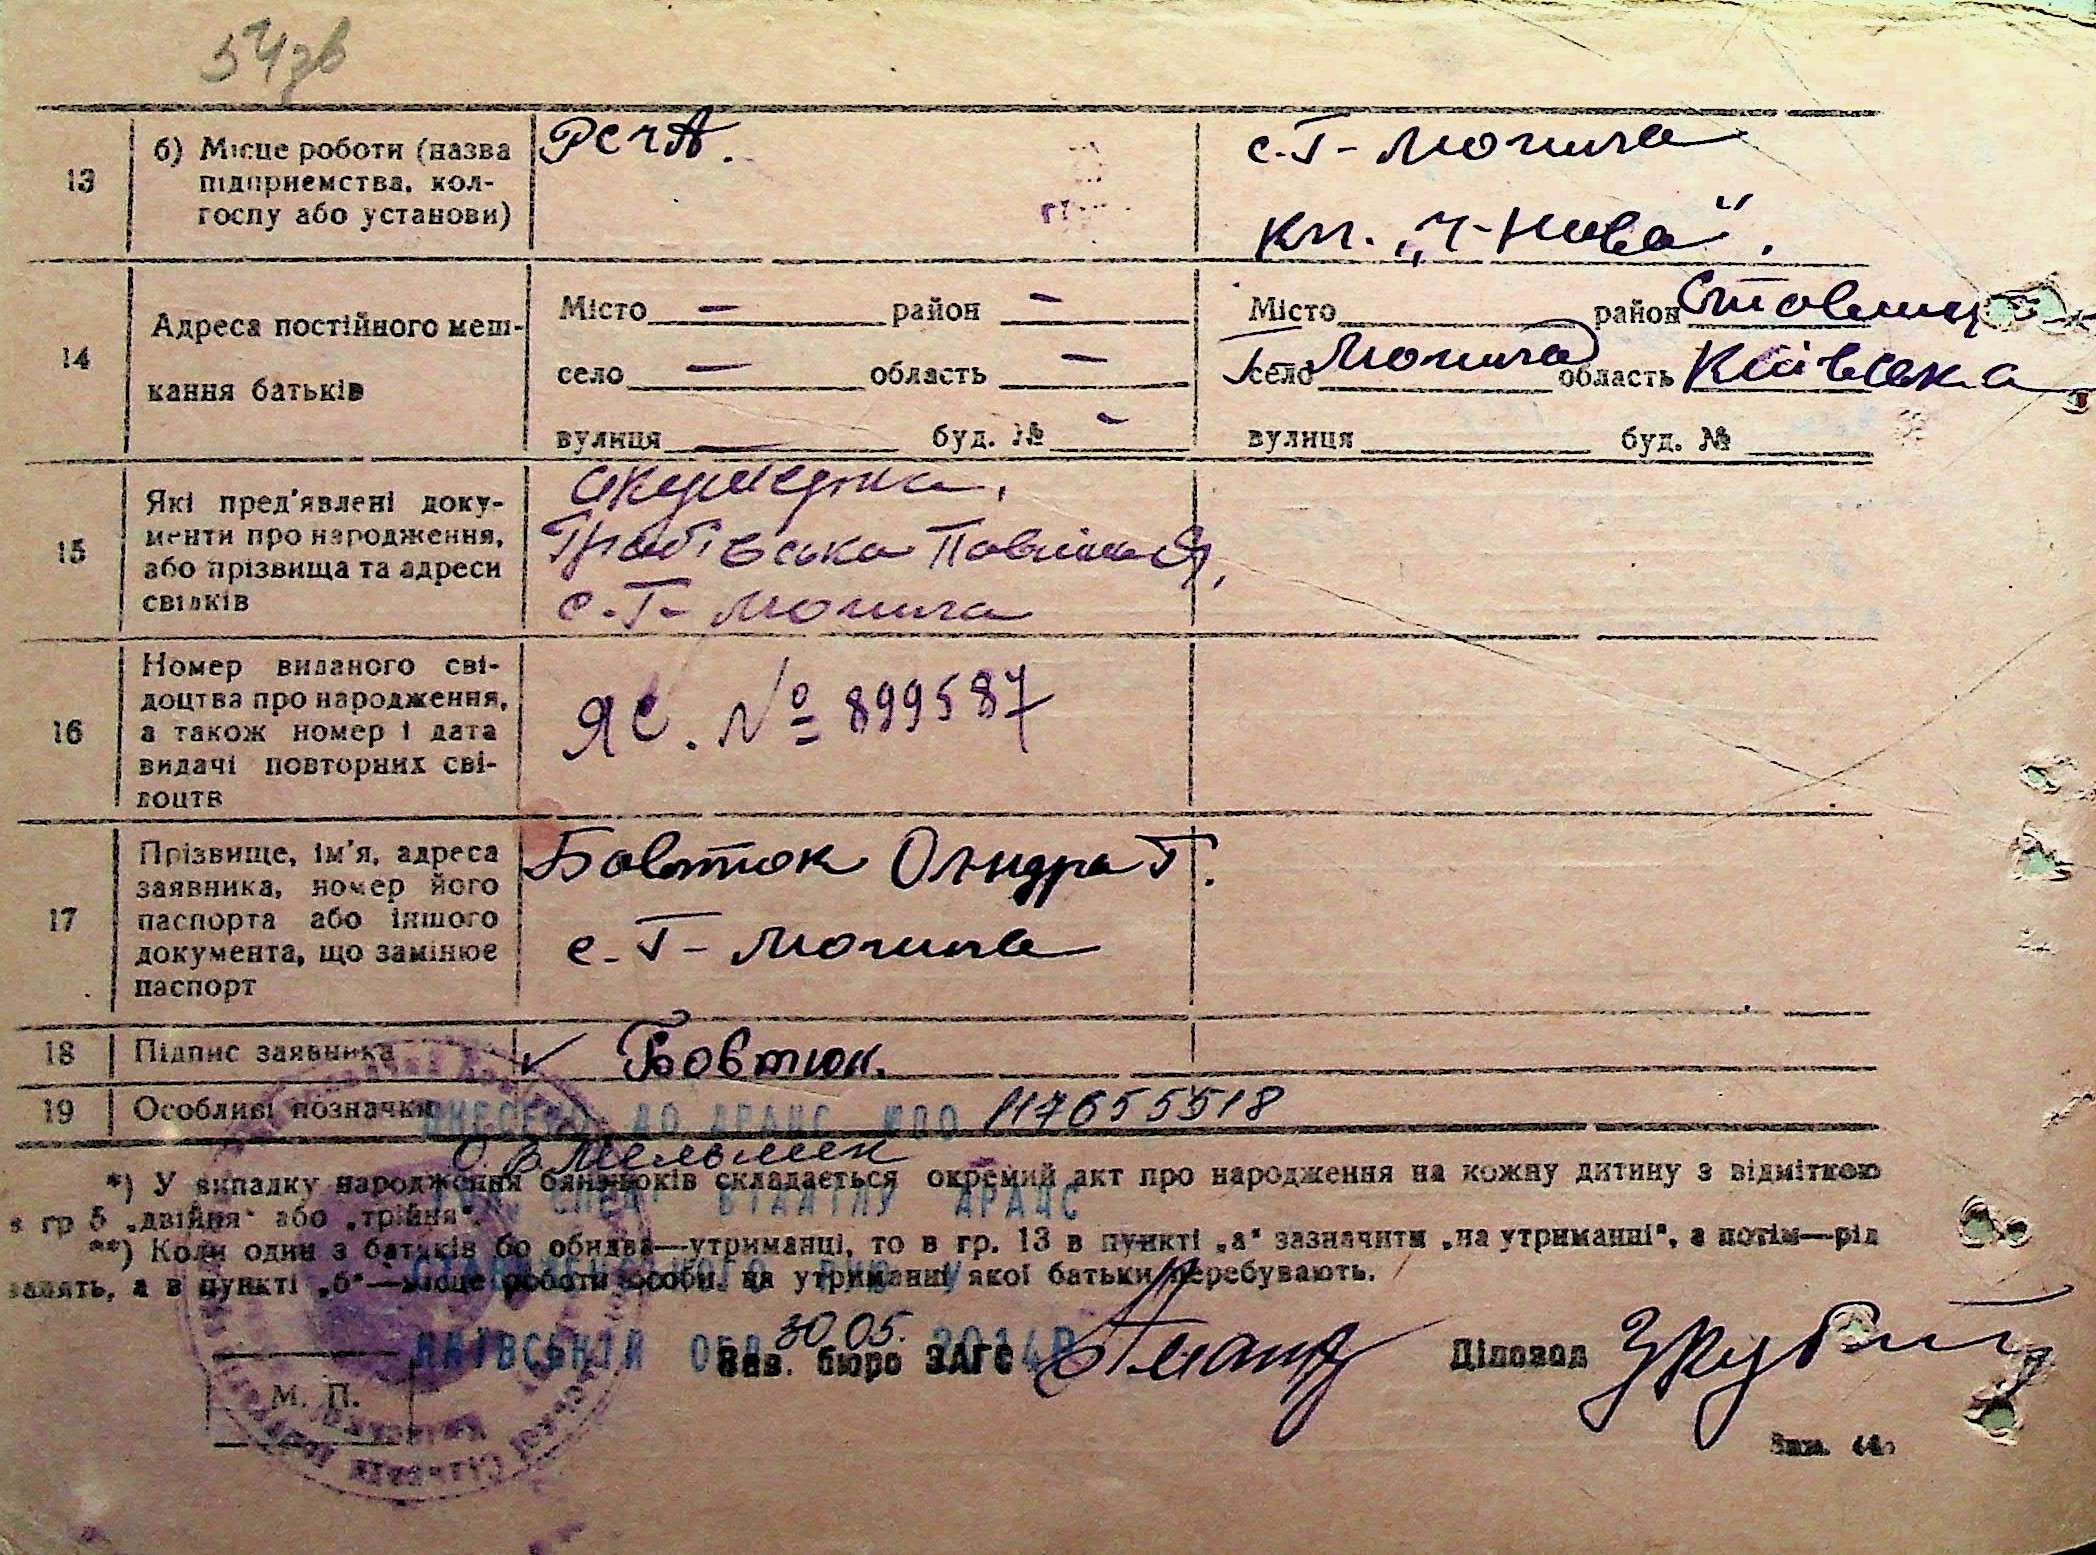 54зв
13
б) Місце роботи (назва
підприємства, кол-
госпу або установи)
РСЧА.
с. Г-Могила
кп. „Ч-Нива".
14
Адреса постійного меш-
кання батьків
Місто — район —
село — область —
вулиця — буд. № -
Місто район Ставищ
село Г Могила область Київська
вулиця буд. №
15
Які пред'явлені доку-
менти про народження,
або прізвища та адреси
свідків
Акушерка,
с. Г-Могила
16
Номер виданого сві-
доцтва про народження,
а також номер і дата
видачі повторних сві-
доцтв
ЯС. № 899587
17
Прізвище, ім'я, адреса
заявника, номер його
паспорта або іншого
документа, що замінює
паспорт
Бовтюк Олндра Г.
с. Г-Могила
18
Підпис заявника
✓ Бовтюк.
19
Особливі позначки
ВНЕСЕНО ДО ДРАЦС 117655518
О. В. Мельник
*) У випадку народження близнюків складається окремий акт про народження на кожну дитину з відміткою
в гр 5 „двійня" або „трійня".
ГОЛ. СПЕЦ. ВІДДІЛУ ДРАЦС
**) Коли один з батьків бо обидва—утриманці, то в гр. 13 в пункті „а" зазначити „на утриманні", а потім—рід
занять, а в пункті „б"—місце роботи особи, на утриманні якої батьки перебувають.
СТАВИЩЕНСЬКОГО РУЮ У
КИЇВСЬКІЙ ОБЛ. 30 05. 2014Р
Зав. бюро ЗАГС
Діловод
М. П.